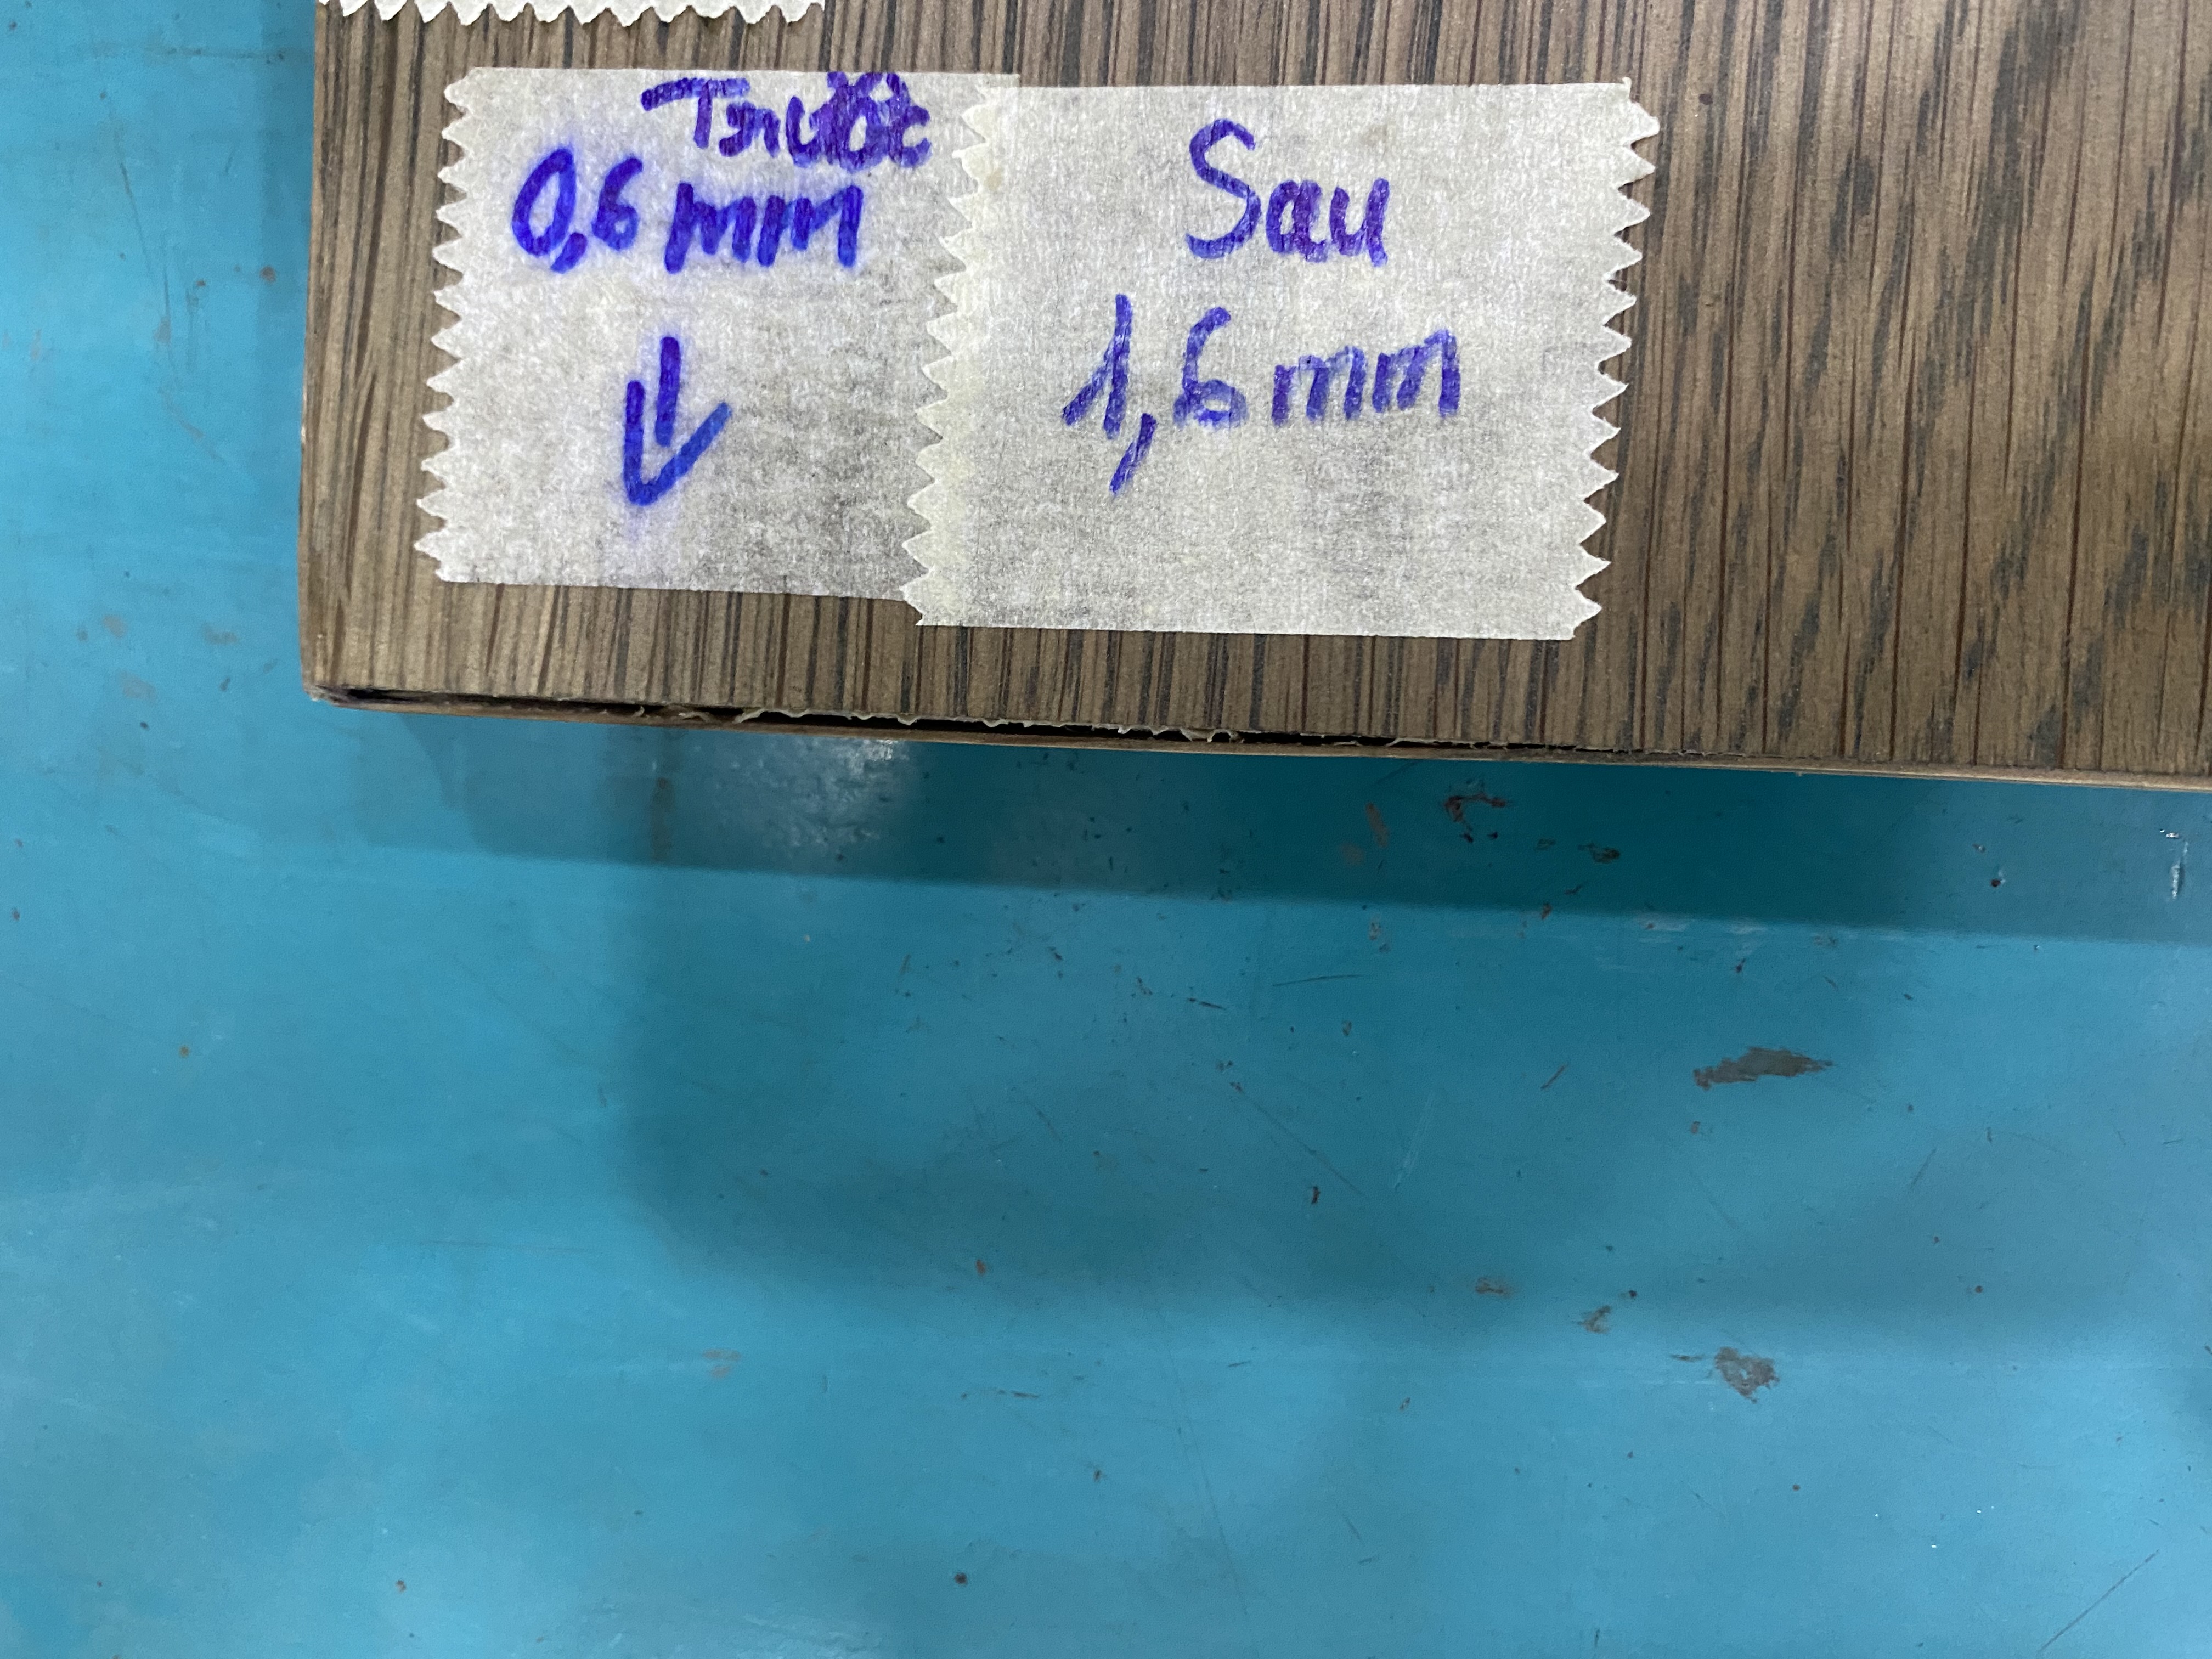 Trước
0,6 mm
Sau
1,6 mm